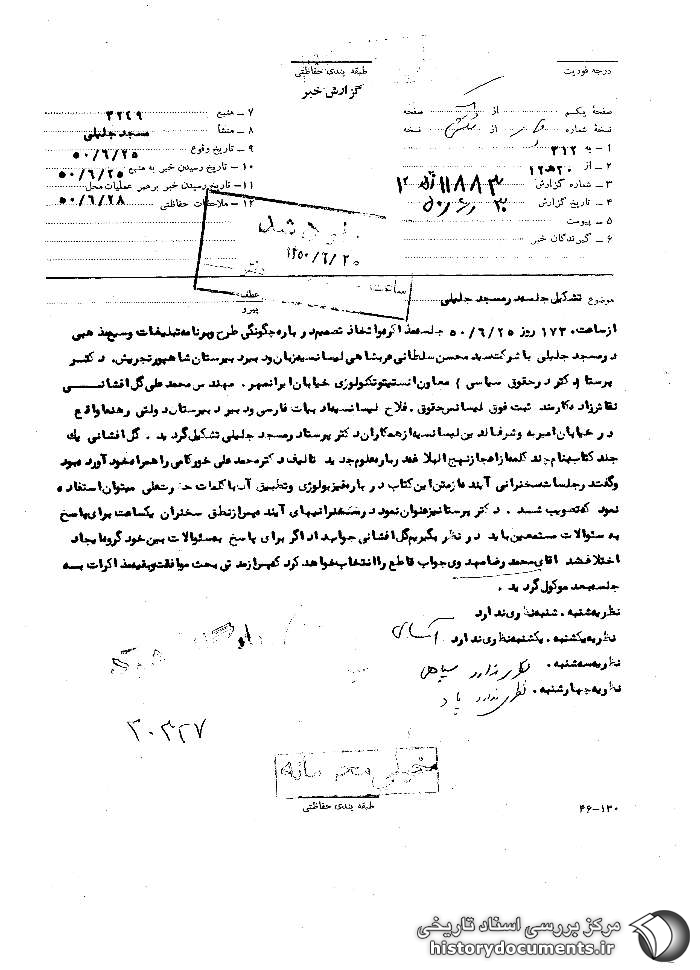 درجه فوریت
طبقه بندی حفاظتی
گزارش خبر
صفحهٔ یکم از صفحه
نسخهٔ شماره از نسخه
۱ ـ به ۳۱۲
۲ ـ از ۲۰ه۱۲
۳ ـ شماره گزارش
۴ ـ تاریخ گزارش
۵ ـ پیوست
۶ ـ گیرندگان خبر
۷ ـ منبع ۳۲۴۹
۸ ـ منشأ مسجد جلیلی
۹ ـ تاریخ وقوع ۵۰/۶/۲۵
۱۰ ـ تاریخ رسیدن خبر به منبع ۵۰/۶/۲۵
۱۱ ـ تاریخ رسیدن خبر برهبر عملیات محل ۵۰/۶/۲۸
۱۲ ـ ملاحظات حفاظتی
۱۳۵۰/۶/۳۰
ساعت
عطف
پیرو
موضوع تشکیل جلسه در مسجد جلیلی
از ساعت ۱۷۳۰ روز ۵۰/۶/۲۵ جلسه مذاکره و اتخاذ تصمیم در باره چگونگی طرح و برنامه تبلیغات وسیع مذهبی
در مسجد جلیلی با شرکت سید محسن سلطانی عربشاهی لیسانسیه زبان و دبیر دبیرستان شاهپور تجریش، دکتر
پرستا (دکتر در حقوق سیاسی) معاون انستیتو تکنولوژی خیابان ایرانمهر، مهندس محمد علی گل افشانی
نقاش زاده کارمند ثبت فوق لیسانس حقوق، فلاح لیسانسیه ادبیات فارسی و دبیر دبیرستان دولتی رهنما واقع
در خیابان امیریه و شرفالدین لیسانسیه از همکاران دکتر پرستا در مسجد جلیلی تشکیل گردید. گل افشانی یک
جلد کتاب بنام چند کلمه از اعجاز نهج البلاغه در باره علوم جدید تالیف دکتر محمد علی خورکامی را همراه خود آورده بود
و گفت در جلسات سخنرانی آینده ما از متن این کتاب در باره فیزیولوژی و تطبیق آن با کلمات حضرت علی میتوان استفاده
نمود که تصویب شد. دکتر پرستا نیز عنوان نمود در سخنرانیهای آینده پس از نطق سخنران یکساعت برای پاسخ
به سئوالات مستمعین باید در نظر بگیریم گل افشانی جواب داد اگر برای پاسخ به سئوالات بین خود گروه ایجاد
اختلاف شد آقای محمد رضا مهدوی جواب قاطع را انتخاب خواهد کرد که پس از مدتی بحث موافقت و بقیه مذاکرات به
جلسه بعد موکول گردید.
نظریه شنبه. شنبه نظری ندارد
نظریه یکشنبه. یکشنبه نظری ندارد آسای
نظریه سه شنبه. نظری ندارد سپاهی
نظریه چهارشنبه. نظری ندارد پاد
۳۰۳۲۷
خیلی محرمانه
طبقه بندی حفاظتی
۴۶-۱۳۰
مرکز بررسی اسناد تاریخی
historydocuments.ir